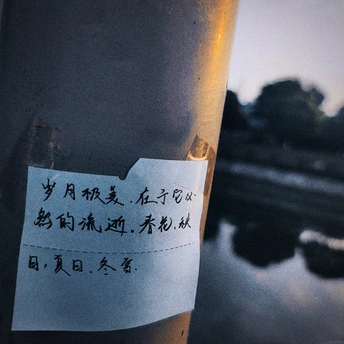 岁月极美,在于它必
然的流逝。春花、秋
月,夏日、冬雪.